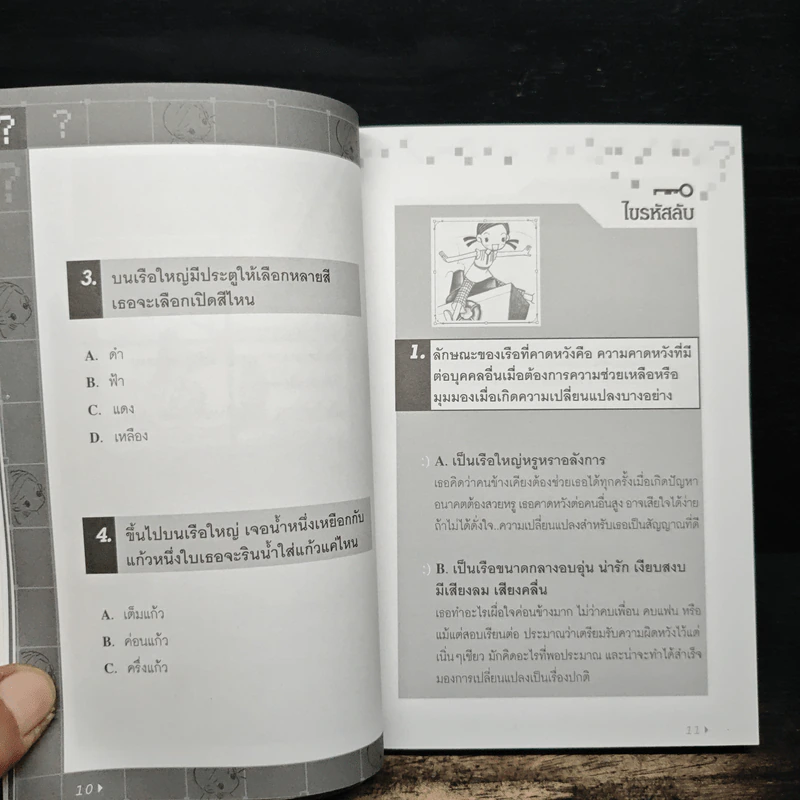 ?
?
?
3. บนเรือใหญ่มีประตูให้เลือกหลายสี
เธอจะเลือกเปิดสีไหน
A. ดำ
B. ฟ้า
C. แดง
D. เหลือง
4. ขึ้นไปบนเรือใหญ่ เจอน้ำหนึ่งเหยือกกับ
แก้วหนึ่งใบเธอจะรินน้ำใส่แก้วแค่ไหน
A. เต็มแก้ว
B. ค่อนแก้ว
C. ครึ่งแก้ว
10
ไขรหัสลับ
1. ลักษณะของเรือที่คาดหวังคือ ความคาดหวังที่มี
ต่อบุคคลอื่นเมื่อต้องการความช่วยเหลือหรือ
มุมมองเมื่อเกิดความเปลี่ยนแปลงบางอย่าง
:) A. เป็นเรือใหญ่หรูหราอลังการ
เธอคิดว่าคนข้างเคียงต้องช่วยเธอได้ทุกครั้งเมื่อเกิดปัญหา
อนาคตต้องสวยหรู เธอคาดหวังต่อคนอื่นสูง อาจเสียใจได้ง่าย
ถ้าไม่ได้ดั่งใจ..ความเปลี่ยนแปลงสำหรับเธอเป็นสัญญาณที่ดี
:) B. เป็นเรือขนาดกลางอบอุ่น น่ารัก เงียบสงบ
มีเสียงลม เสียงคลื่น
เธอทำอะไรเผื่อใจค่อนข้างมาก ไม่ว่าคบเพื่อน คบแฟน หรือ
แม้แต่สอบเรียนต่อ ประมาณว่าเตรียมรับความผิดหวังไว้แต่
เนิ่นๆเชียว มักคิดอะไรที่พอประมาณ และน่าจะทำได้สำเร็จ
มองการเปลี่ยนแปลงเป็นเรื่องปกติ
11